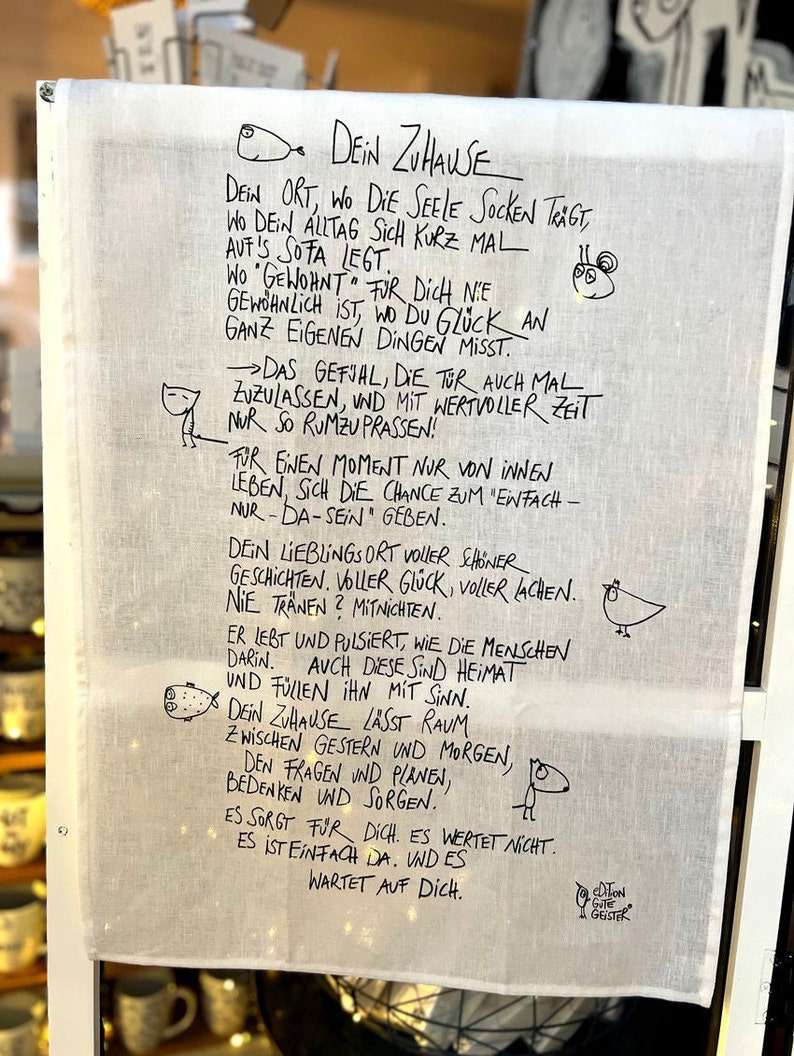 Dein Zuhause
Dein Ort, wo die Seele Socken trägt,
wo dein Alltag sich kurz mal
auf's Sofa legt.
Wo "gewohnt" für dich nie
gewöhnlich ist, wo du Glück an
ganz eigenen Dingen misst.
→Das Gefühl, die Tür auch mal
zuzulassen, und mit wertvoller Zeit
nur so rumzuprassen!
Für einen Moment nur von innen
leben, sich die Chance zum "einfach-
nur-da-sein" geben.
Dein Lieblingsort voller schöner
Geschichten. Voller Glück, voller Lachen.
Nie Tränen? Mitnichten.
Er lebt und pulsiert, wie die Menschen
darin. Auch diese sind Heimat
und füllen ihn mit Sinn.
Dein Zuhause lässt Raum
zwischen gestern und morgen,
den Fragen und Planen,
Bedenken und Sorgen.
Es sorgt für dich. Es wertet nicht.
Es ist einfach da. Und es
wartet auf dich.
eDiTion
GUTE
GEISTER®